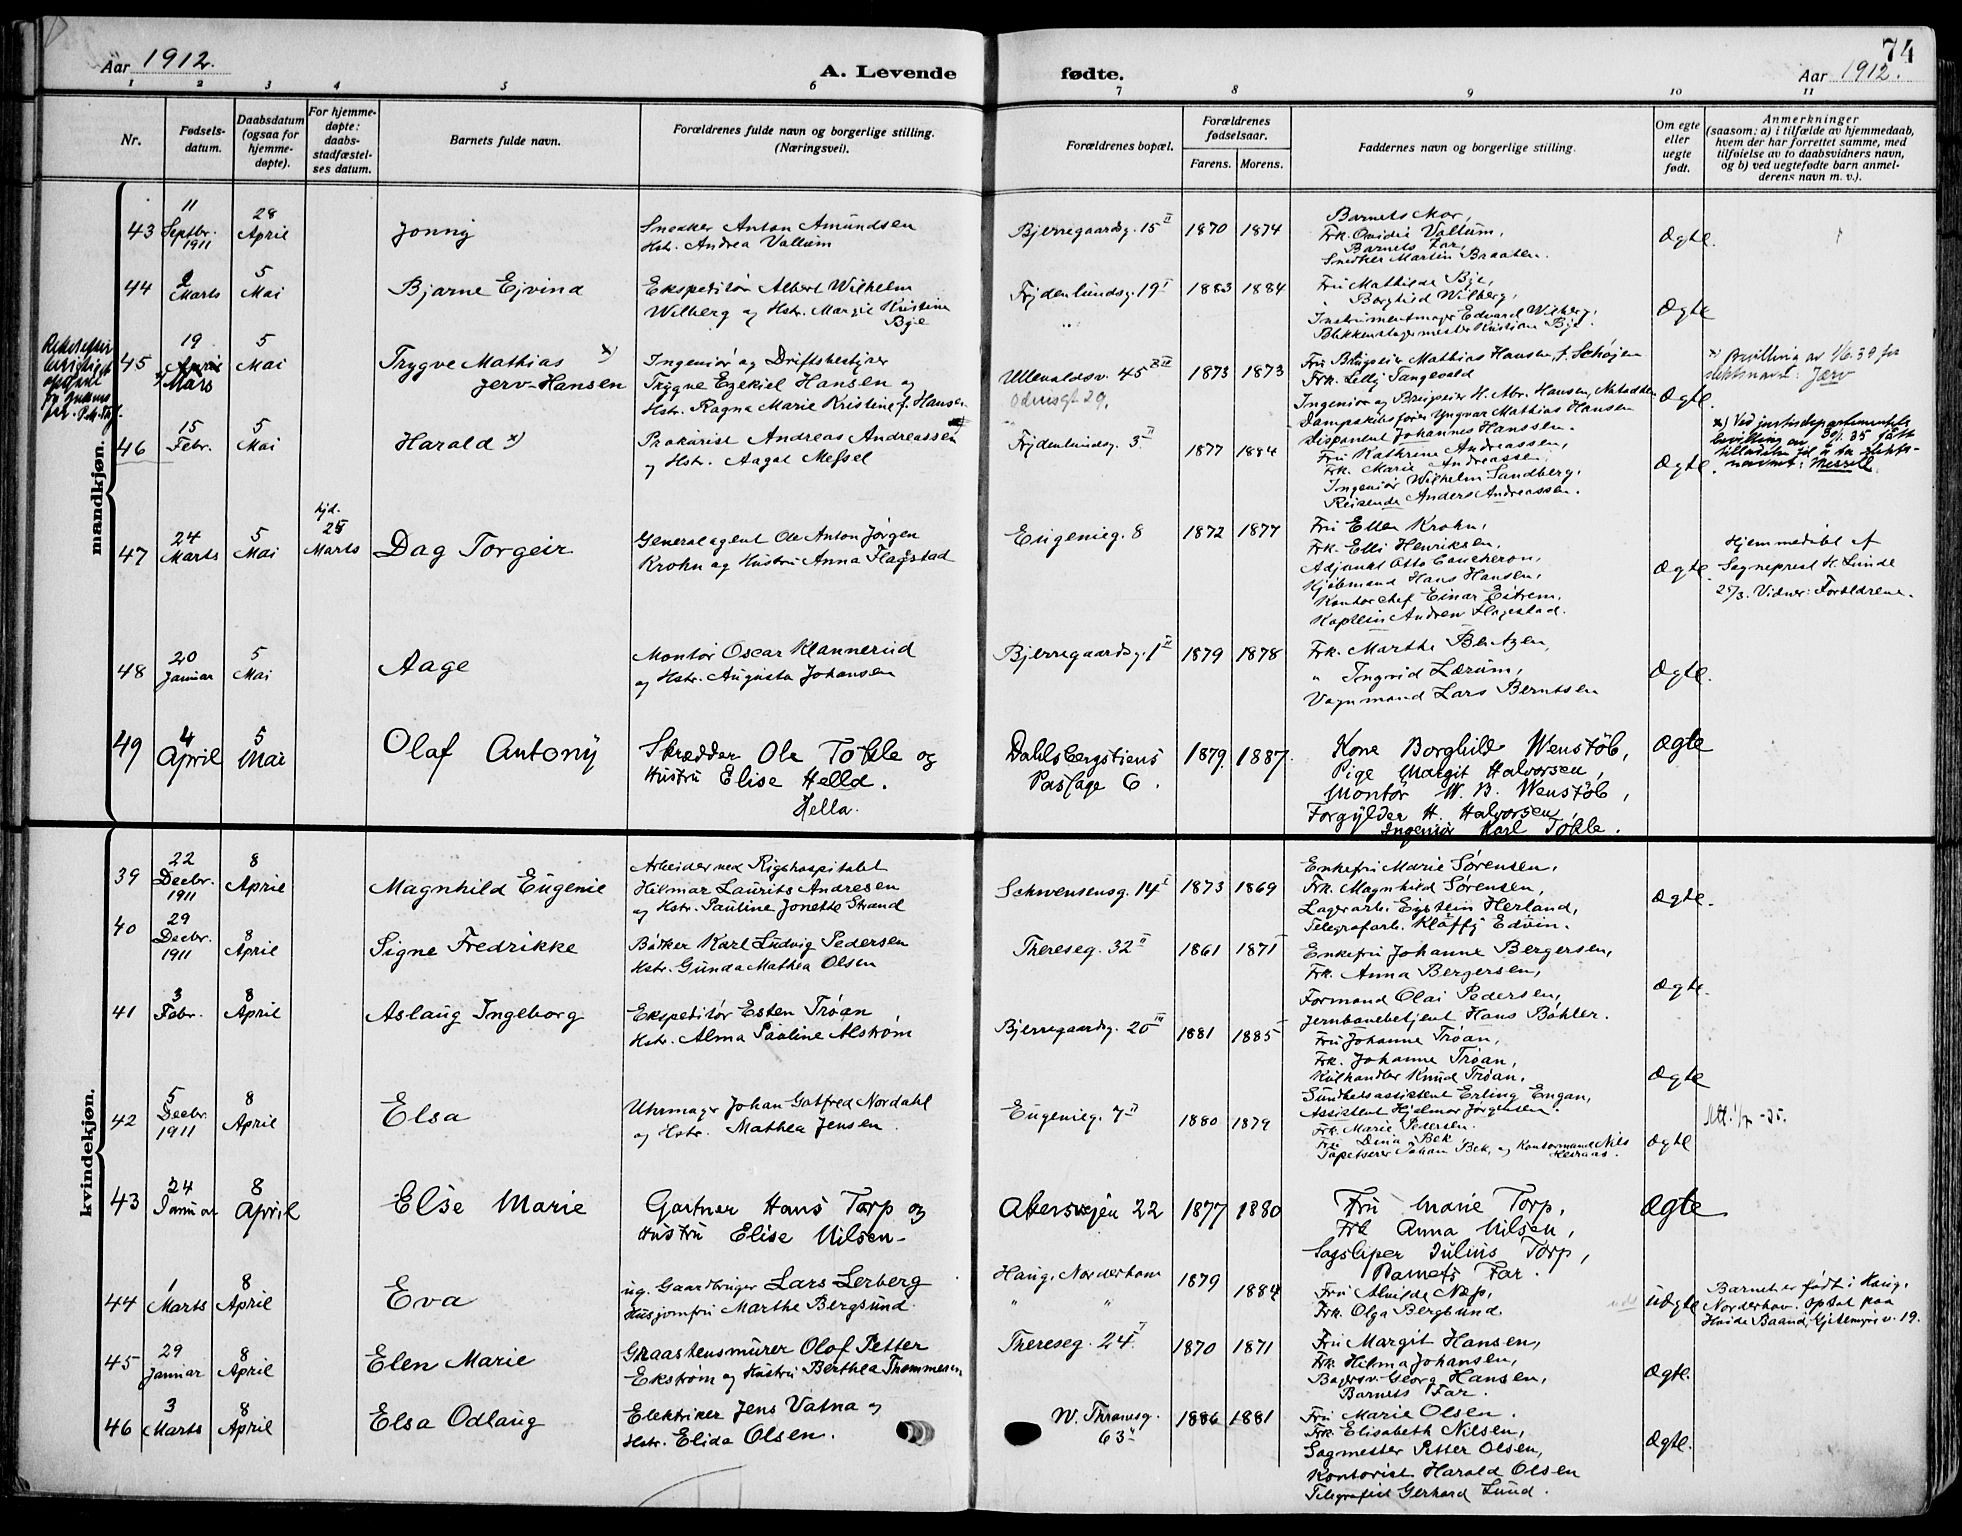 Aar 1912.
A. Levende fødte.
74
Aar 1912.
1 2 3 4 5 6 7 8 9 10 11
Nr.
Fødsels-
datum.
Daabsdatum
(ogsaa for
hjemme-
døpte).
For hjemme-
døpte:
daabs-
stadfæstel-
ses datum.
Barnets fulde navn.
Forældrenes fulde navn og borgerlige stilling.
(Næringsvei).
Forældrenes bopæl.
Forældrenes
fødselsaar.
Farens. Morens.
Faddernes navn og borgerlige stilling.
Om egte
eller
uegte
født.
Anmerkninger
(saasom: a) i tilfælde av hjemmedaab,
hvem der har forrettet samme, med
tilføielse av to daabsvidners navn,
og b) ved uegtefødte barn anmel-
derens navn m. v.).
mandkjøn.
43
11
Septbr.
1911
28
April
Jonny
Snedker Anton Amundsen
Hstr. Andrea Vallum
Bjerregaardsg. 15 II
1870 1874
Barnets Mor,
Frk. Ovidia Vallum,
Barnets Far,
Snedker Martin Braaten.
Ægte.
44
Marts
5
Mai
Bjarne Ejvind
Ekspeditør Albert Wilhelm
Wilberg og Hstr. Margit Kristine
Bye
Frydenlundsg. 19 I
1883 1884
Fru Mathilde Bye,
" Borghild Wilberg,
Instrumentmager Edvard Wilberg,
Blikkenslagermester Kristian Bye.
Ægte
45
19
April
Mars
5
Mai
Trygve Mathias x)
Jerv-Hansen
Ingeniør og Driftsbestyrer
Trygve Ezekiel Hansen og
Hstr. Ragna Marie Kristine f. Hansen
Ullevaldsv. 45
Odinsgt 29.
1873 1873
Fru Brigpeier Mathias Hansen f. Schøjen
Frk. Lilly Tangevald
Ingeniør og Brugseier H. Abr. Hansen, Natadten
Dampskibsfører Yngvar Mathias Hansen
Disponent Johannes Hanssen.
Ægte.
x) Bevilling av 1/6 39 for
slektsnavnet: Jerv
46
15
Febr.
5
Mai
Harald x)
Prokurist Andreas Andreassen
og Hstr. Aagot Messel
Frydenlundsg. 3 II
1877 1884
Fru Kathrine Andreassen,
Frk. Marie Andreassen,
Ingeniør Wilhelm Sandberg,
Reisende Anders Andreassen.
Ægte
x) Ved justisdepartementets
bevilling av 30/1. 35 fått
tillatelse til å ta slekts-
navnet: Messell
47
24
Marts
5
Mai
hjd.
25
Marts
Dag Torgeir
Generalagent Ole Anton Jørgen
Krohn og Hustru Anna Flagstad
Eugenieg. 8
1872 1877
Fru Ellen Krohn,
Frk. Elli Henriksen,
Adjunkt Otto Caucheron,
Kjøbmand Hans Hansen,
Kontorchef Einar Eitrem,
Kaptein Andreas Flagestad.
Ægte.
Hjemmedøbt af
Sogneprest H. Lunde
25/3. Vidner: Forældrene.
48
20
Januar
5
Mai
Aage
Montør Oscar Klannerud
og Hstr. Augusta Johansen
Bjerregaardsg. 1 II
1879 1878
Frk. Marthe Bentzen,
" Ingrid Lærum,
Vognmand Lars Berntsen
Ægte.
49
4
April
5
Mai
Olaf Antony
Skrædder Ole Tokle og
Hustru Elise Helld.
Hella.
Dahlsbergstiens
Passage 6.
1879 1887.
Kone Borghild Wenstöb,
Pige Margit Halvorsen,
Montør W. B. Wenstöb,
Forgylder H. Halvorsen,
Ingeniør Karl Tokle.
Ægte
kvindekjøn.
39
22
Decbr.
1911
8
April
Magnhild Eugenie
Arbeider ved Rigshospitalet
Hilmar Laurits Andresen
og Hstr. Pauline Jonette Strand
Schwensensg. 14 I
1873 1869
Enkefru Marie Sørensen,
Frk. Magnhild Sørensen,
Lagerarb. Eystein Herland,
Telegrafarb. Kläffy Edvin.
Ægte.
40
29
Decbr.
1911
8
April
Signe Fredrikke
Bøtker Karl Ludvig Pedersen
Hstr. Gunda Mathea Olsen
Thereseg. 32 II
1861 1871
Enkefru Johanne Bergersen,
Frk. Anna Bergersen,
Formand Olai Pedersen,
Jernbanebetjent Hans Bøhler.
Ægte.
41
3
Febr.
8
April
Aslaug Ingeborg
Ekspeditør Esten Trøan
Hstr. Alma Pauline Alstrøm
Bjerregaardsg. 20 III
1881 1885
Fru Johanne Trøan,
Frk. Johanne Trøan,
Kulhandler Knud Trøan,
Sundhetsassistent Erling Engan,
Assistent Hjalmar Jørgensen.
Ægte
42
5
Decbr.
1911
8
April
Elsa
Uhrmager Johan Gotfred Nordahl
og Hstr. Mathea Jensen.
Eugenieg. 7 II
1880 1879
Frk. Marie Pedersen.
Fru Dina Bek
Tapetserer Johan Bek, og Kontormand Nils
Ægte
Att. 1/7 -35.
43
24
Januar
8
April
Else Marie
Gartner Hans Torp og
Hustru Elise Nilsen-
Akersvejen 22
1877 1880
Fru Marie Torp,
Frk Anna Nilsen,
Sagsliper Julius Torp,
Barnets Far.
Ægte
44
1
Marts
8
April
Eva
ug. Gaardbruger Lars Lerberg
Husjomfru Marthe Bergsund.
Haug, Norderhov
" "
1879 1884
Fru Alvilde Næss,
Frk. Olga Bergsund.
uægte
Barnet er født i Haug,
Norderhov. Optat paa
Huida Baand, Gjetemyrsv. 19.
45
29
Januar
8
April
Elen Marie
Graastensmurer Olof Petter
Ekstrøm og Hustru Berthea Thommesen
Thereseg. 24 I
1870 1871
Fru Margit Hansen,
Frk. Hilma Johansen,
Bagersv. Georg Hansen,
Barnets Far.
Ægte.
46
3
Marts
8
April
Elsa Odlaug
Elektriker Jens Vatna og
Hstr. Elida Olsen.
W. Thranesg.
63 II
1886 1881
Fru Marie Olsen.
Frk. Elisabeth Nilsen,
Sagmester Petter Olsen,
Kontorist Harald Olsen
Telegrafist Gerhard Lund.
Ægte.